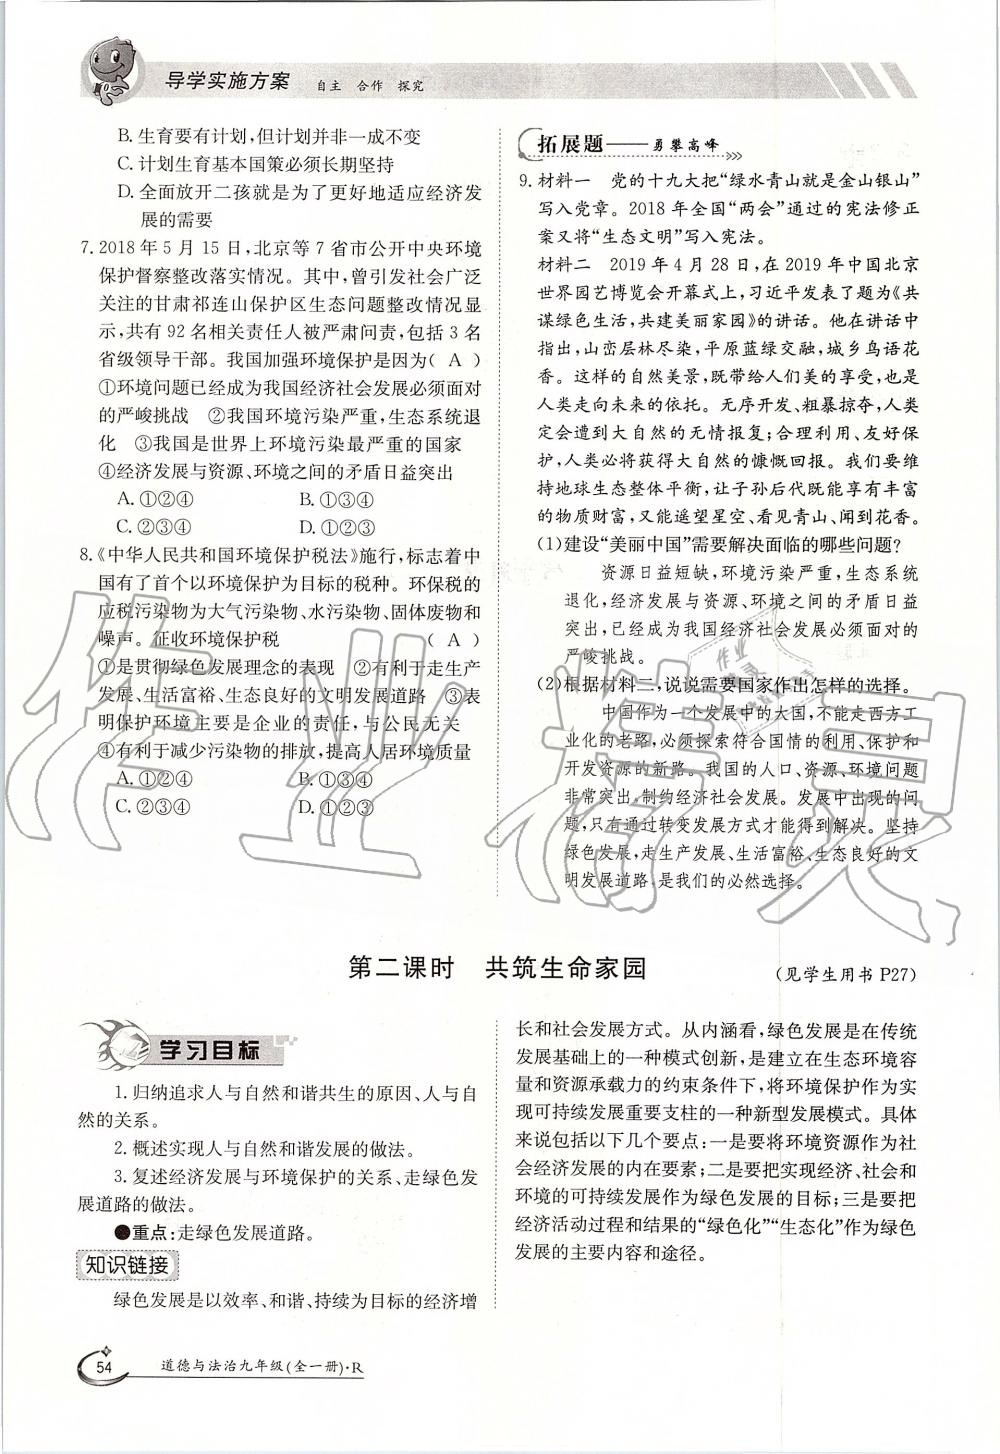 导学实施方案 自主 合作 探究
B. 生育要有计划,但计划并非一成不变
C. 计划生育基本国策必须长期坚持
D. 全面放开二孩就是为了更好地适应经济发
展的需要
7. 2018 年 5 月 15 日,北京等 7 省市公开中央环境
保护督察整改落实情况。其中,曾引发社会广泛
关注的甘肃祁连山保护区生态问题整改情况显
示,共有 92 名相关责任人被严肃问责,包括 3 名
省级领导干部。我国加强环境保护是因为( A )
①环境问题已经成为我国经济社会发展必须面对
的严峻挑战 ②我国环境污染严重,生态系统退
化 ③我国是世界上环境污染最严重的国家
④经济发展与资源、环境之间的矛盾日益突出
A. ①②④ B. ①③④
C. ②③④ D. ①②③
8.《中华人民共和国环境保护税法》施行,标志着中
国有了首个以环境保护为目标的税种。环保税的
应税污染物为大气污染物、水污染物、固体废物和
噪声。征收环境保护税 ( A )
①是贯彻绿色发展理念的表现 ②有利于走生产
发展、生活富裕、生态良好的文明发展道路 ③表
明保护环境主要是企业的责任,与公民无关
④有利于减少污染物的排放,提高人居环境质量
A. ①②④ B. ①③④
C. ②③④ D. ①②③
拓展题——勇攀高峰
9. 材料一 党的十九大把“绿水青山就是金山银山”
写入党章。2018 年全国“两会”通过的宪法修正
案又将“生态文明”写入宪法。
材料二 2019 年 4 月 28 日,在 2019 年中国北京
世界园艺博览会开幕式上,习近平发表了题为《共
谋绿色生活,共建美丽家园》的讲话。他在讲话中
指出,山峦层林尽染,平原蓝绿交融,城乡鸟语花
香。这样的自然美景,既带给人们美的享受,也是
人类走向未来的依托。无序开发、粗暴掠夺,人类
定会遭到大自然的无情报复;合理利用、友好保
护,人类必将获得大自然的慷慨回报。我们要维
持地球生态整体平衡,让子孙后代既能享有丰富
的物质财富,又能遥望星空、看见青山、闻到花香。
(1)建设“美丽中国”需要解决面临的哪些问题?
资源日益短缺,环境污染严重,生态系统
退化,经济发展与资源、环境之间的矛盾日益
突出,已经成为我国经济社会发展必须面对的
严峻挑战。
(2)根据材料二,说说需要国家作出怎样的选择。
中国作为一个发展中的大国,不能走西方工
业化的老路,必须探索符合国情的利用、保护和
开发资源的新路。我国的人口、资源、环境问题
非常突出,制约经济社会发展。发展中出现的问
题,只有通过转变发展方式才能得到解决。坚持
绿色发展,走生产发展、生活富裕、生态良好的文
明发展道路,是我们的必然选择。
第二课时 共筑生命家园 (见学生用书 P27)
学习目标
1. 归纳追求人与自然和谐共生的原因、人与自
然的关系。
2. 概述实现人与自然和谐发展的做法。
3. 复述经济发展与环境保护的关系、走绿色发
展道路的做法。
●重点:走绿色发展道路。
知识链接
绿色发展是以效率、和谐、持续为目标的经济增
长和社会发展方式。从内涵看,绿色发展是在传统
发展基础上的一种模式创新,是建立在生态环境容
量和资源承载力的约束条件下,将环境保护作为实
现可持续发展重要支柱的一种新型发展模式。具体
来说包括以下几个要点:一是要将环境资源作为社
会经济发展的内在要素;二是要把实现经济、社会和
环境的可持续发展作为绿色发展的目标;三是要把
经济活动过程和结果的“绿色化”“生态化”作为绿色
发展的主要内容和途径。
54 道德与法治九年级(全一册)·R
作业精灵